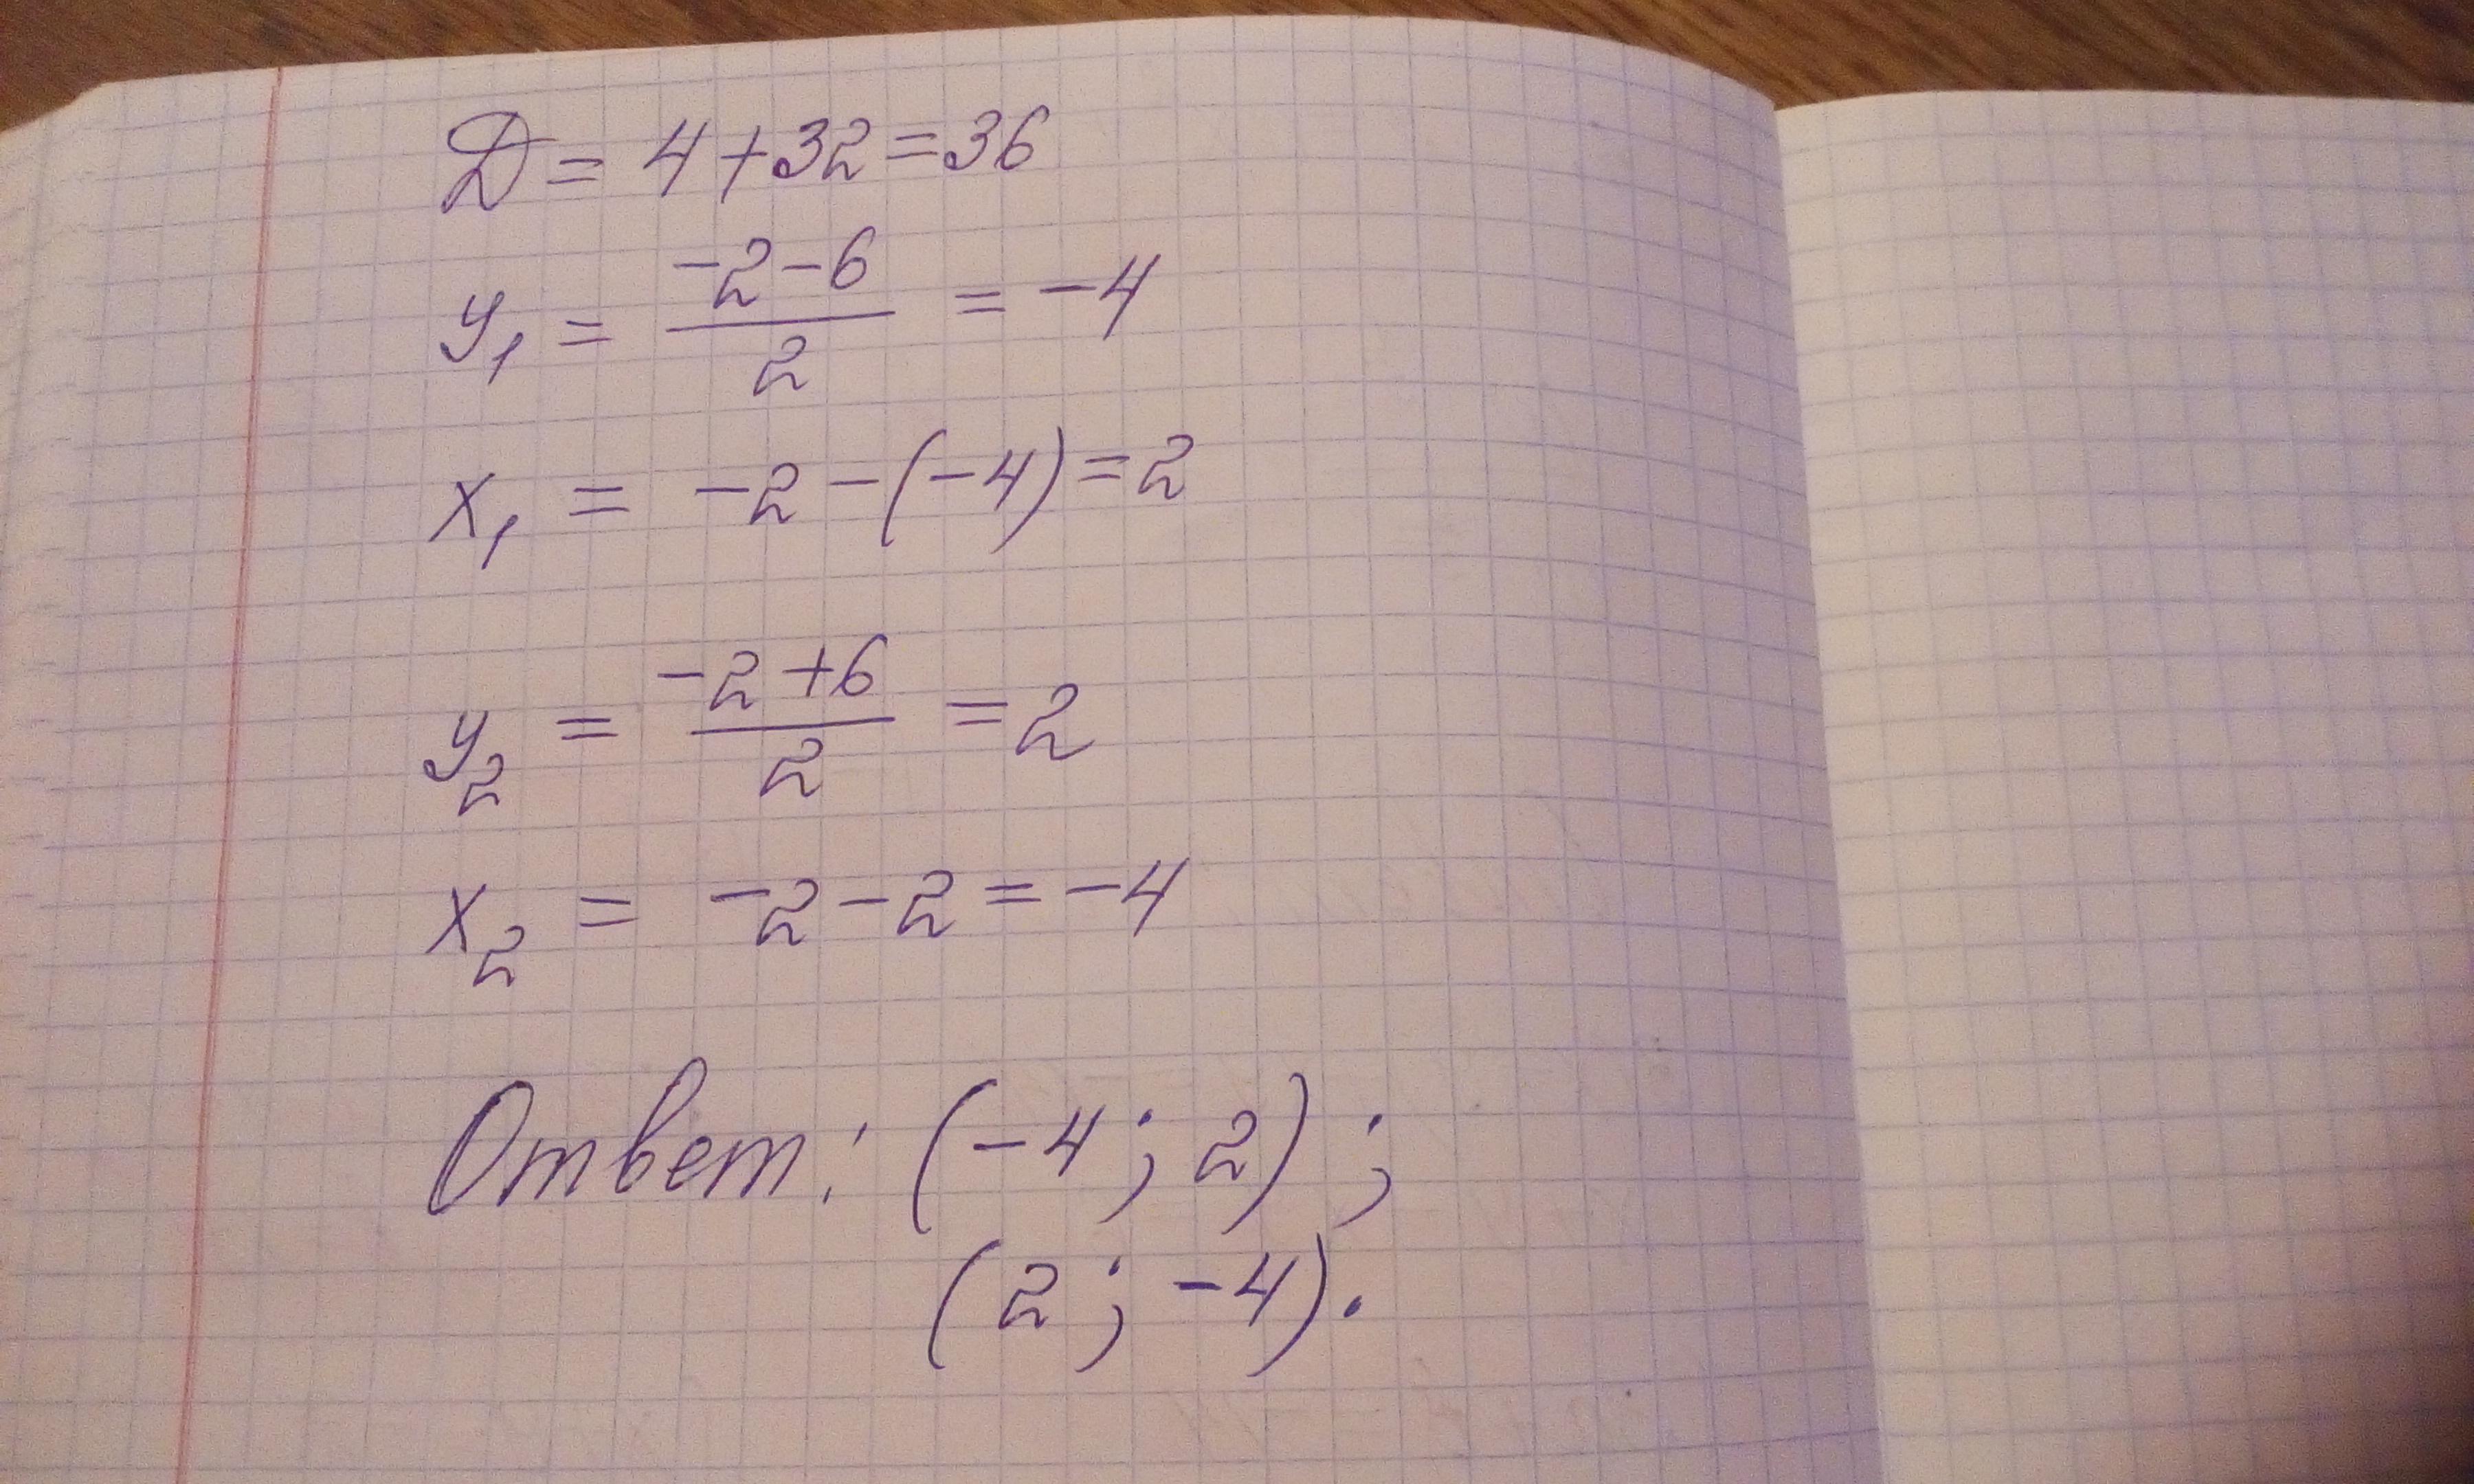 Д = 4 + 32 = 36
y₁ = (-2-6)/2 = -4
x₁ = -2-(-4) = 2
y₂ = (-2+6)/2 = 2
x₂ = -2-2 = -4
Ответ: (-4; 2);
(2; -4).